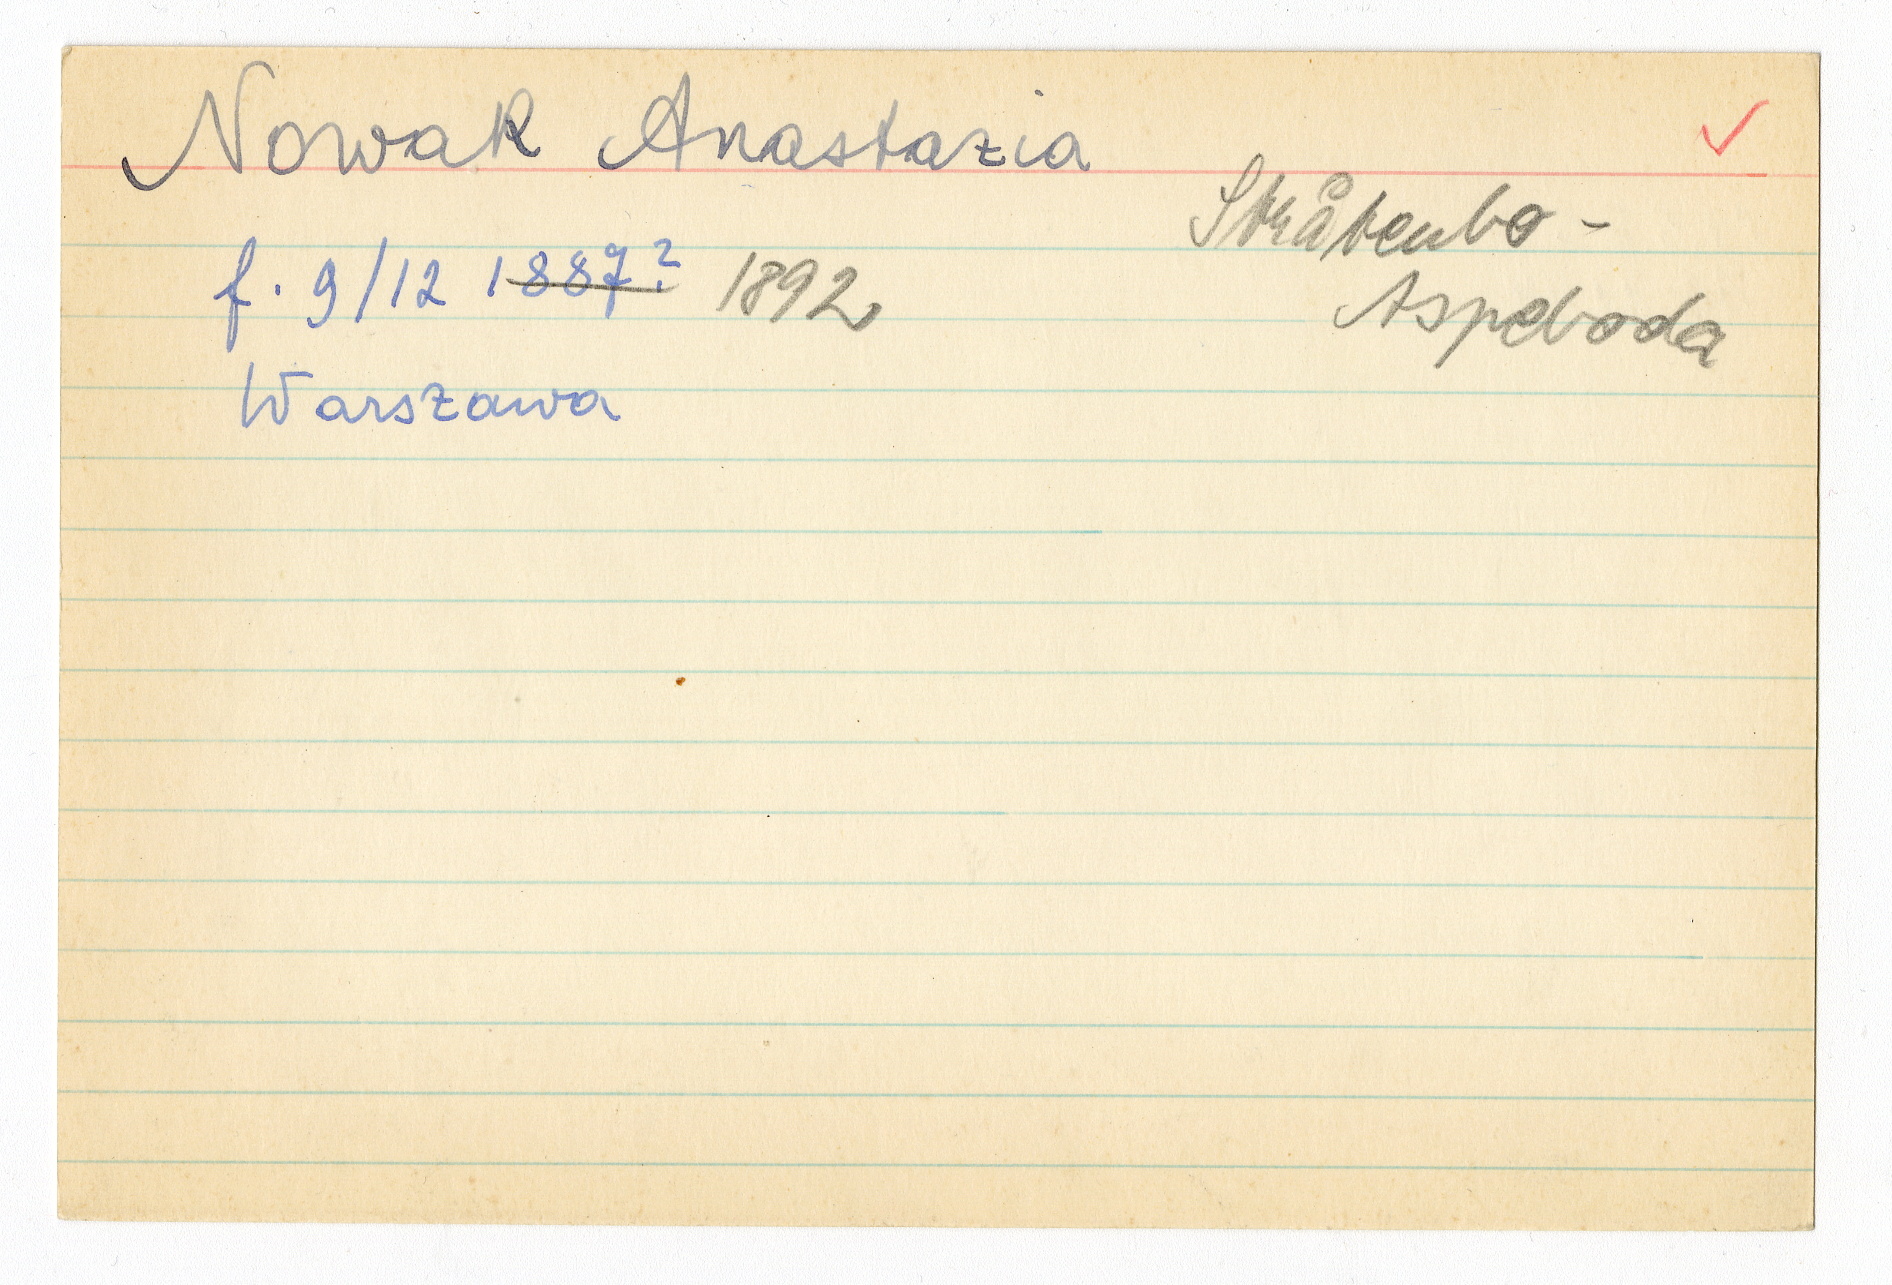 Nowak Anastazia
Stråtenbo -
Aspeboda
f. 9/12 1887? 1892
Warszawa